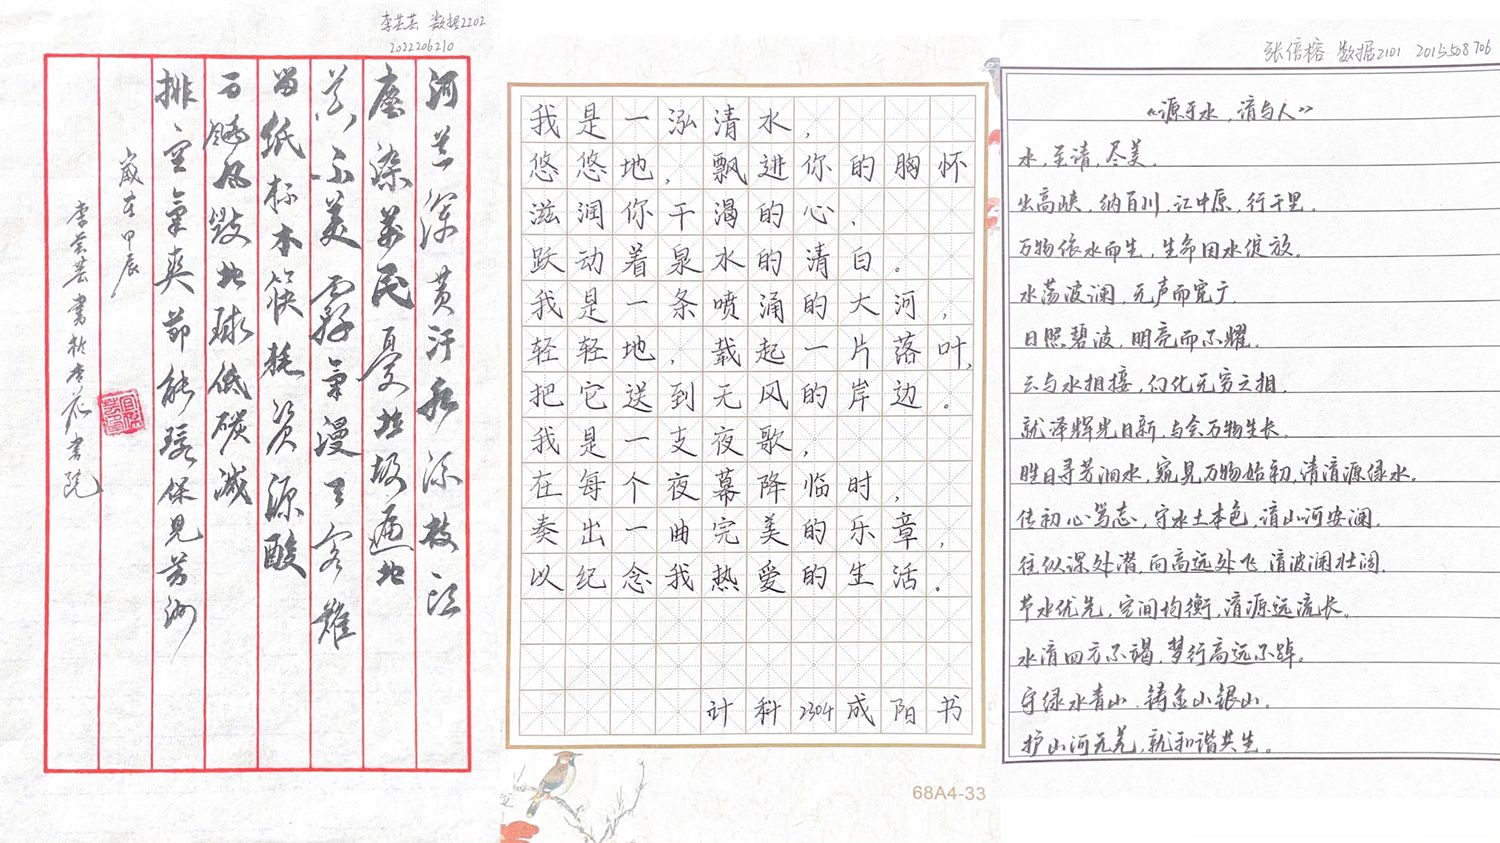 李芸芸 数据2202
2022206210
河 深黄汙水流 江
塵染萬民憂垃圾遍地
不美霧氣漫天容難
留紙标木筷耗资源酸
雨飓风毁地球低碳减
排空氣爽節能環保見芳洲
歲在甲辰
李芸芸書於杏花書院
我是一泓清水，
悠悠地，飘进你的胸怀
滋润你干渴的心，
跃动着泉水的清白。
我是一条喷涌的大河，
轻轻地，载起一片落叶，
把它送到无风的岸边。
我是一支夜歌，
在每个夜幕降临时，
奏出一曲完美的乐章，
以纪念我热爱的生活。
计科2304成阳书
68A4-33
张倍榕 数据2101 2015508706
《源于水，清与人》
水，至清，尽美。
出高峡，纳百川，江中原，行千里。
万物依水而生，生命因水绽放。
水荡波澜，无声而宽广。
日照碧波，明亮而不耀。
云与水相接，幻化无穷之相。
就泽辉光日新，与会万物生长。
胜日寻芳泗水，窥见万物始初，清清源绿水。
传初心笃志，守水土本色，清山河安澜。
往似深处潜，向高远处飞，清波澜壮阔。
节水优先，空间均衡，清源远流长。
水清四方不竭，梦行高远不辍。
守绿水青山，铸金山银山。
护山河无恙，就和谐共生。